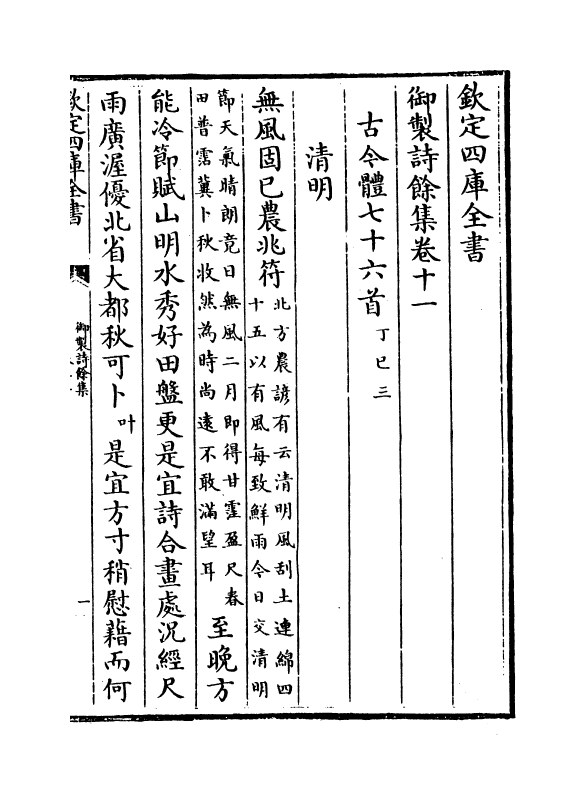 欽定四庫全書
御製詩餘集卷十一
古今體七十六首丁巳三
清明
無風固已農兆符北方農諺有云清明風刮土連綿四
十五以有風每致鮮雨今日交清明
節天氣晴朗竟日無風二月即得甘霔盈尺春
田普霑冀卜秋收然為時尚遠不敢滿望耳至晚方
能冷節賦山明水秀好田盤更是宜詩合畫處況經尺
雨廣渥優北省大都秋可卜叶是宜方寸稍慰藉而何
欽定四庫全書
御製詩餘集
一